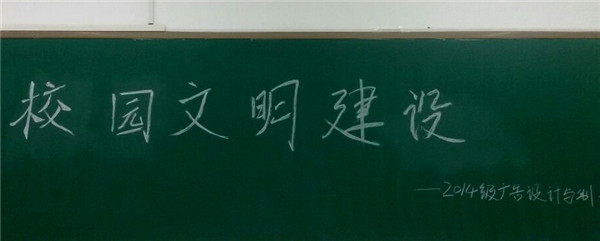 校园文明建设
——2014级广告设计与制